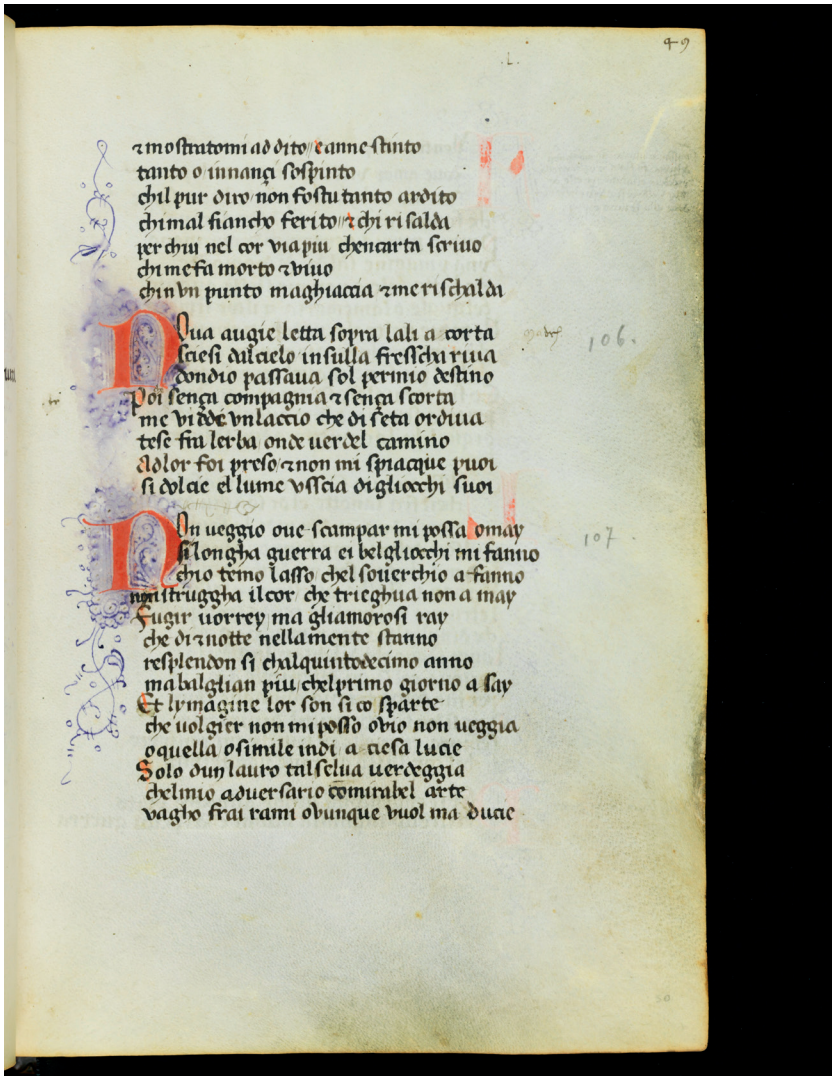 49
.L.
⁊ mostratomi ad dito / e anne stinto
tanto o innançi sospinto
chil pur diro non fostu tanto ardito
chi mal fiancho ferito / ⁊ chi risalda
per chui nel cor via piu chencarta scriuo
chi me fa morto ⁊ viuo
chin vn punto maghiaccia ⁊ me rischalda
Nua augieletta sopra lali a corta
sciesi dal cielo in sulla frescha riua
dondio passaua sol per mio destino
Poi sença compagnia ⁊ sença scorta
me vidde vn laccio che di seta ordiua
tese fra lerba onde uerdel camino
Adlor foi preso / ⁊ non mi spiacque puoi
si dolcie el lume vsscia di gliocchi suoi
106.
Non ueggio oue scampar mi possa omay
si longha guerra ei belgliocchi mi fanno
chio temo lasso chel souerchio affanno
non struggha il cor che trieghua non a may
Fugir uorrey ma gliamorosi ray
che di ⁊ notte nella mente stanno
resplendon si chal quintodecimo anno
mabalglian piu chel primo giorno a say
Et lymagine lor son si co sparte
che uolgier non mi posso ovio non ueggia
o quella o simile indi a ciesa lucie
Solo dun lauro tal selua uerdeggia
chel mio aduersario cō mirabel arte
vagho frai rami ovunque vuol ma ducie
107.
50